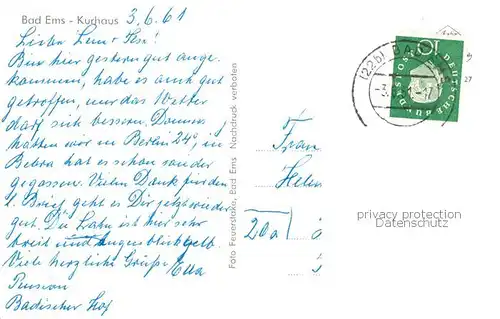 Bad Ems - Kurhaus 3.6.61
Bin hier gestern gut ange-
kommen, habe es auch gut
getroffen, nur das Wetter
darf sich bessern. Donners
hatten wir in Berlin 24°, in
Bebra hat es schon
gegossen. Vielen Dank für den
l. Brief, geht es Dir jetzt wieder
gut. Die Lahn ist hier sehr
breit und augenblickl. gelb.
Viele herzliche Grüße Ella
Pension
Badischer Hof
Foto Feuerstake, Bad Ems Nachdruck verboten
Frau
Helen
20a
(22b) BAD
DEUTSCHE BUNDESPOST
10
27
privacy protection
Datenschutz